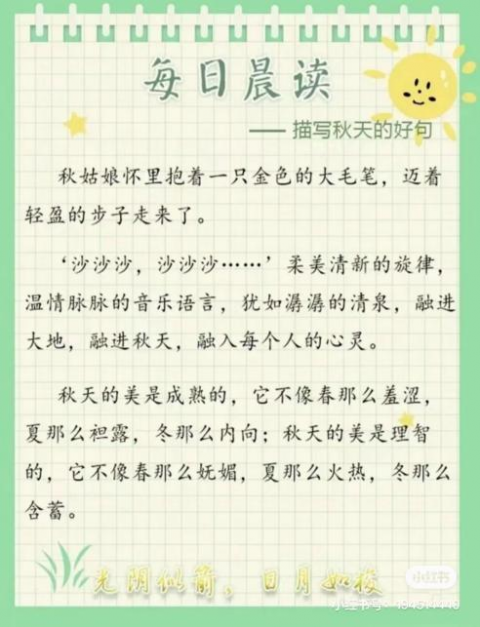 每日晨读
—— 描写秋天的好句
秋姑娘怀里抱着一只金色的大毛笔，迈着
轻盈的步子走来了。
‘沙沙沙，沙沙沙……’柔美清新的旋律，
温情脉脉的音乐语言，犹如潺潺的清泉，融进
大地，融进秋天，融入每个人的心灵。
秋天的美是成熟的，它不像春那么羞涩，
夏那么袒露，冬那么内向；秋天的美是理智
的，它不像春那么妩媚，夏那么火热，冬那么
含蓄。
光阴似箭、日月如梭
小红书